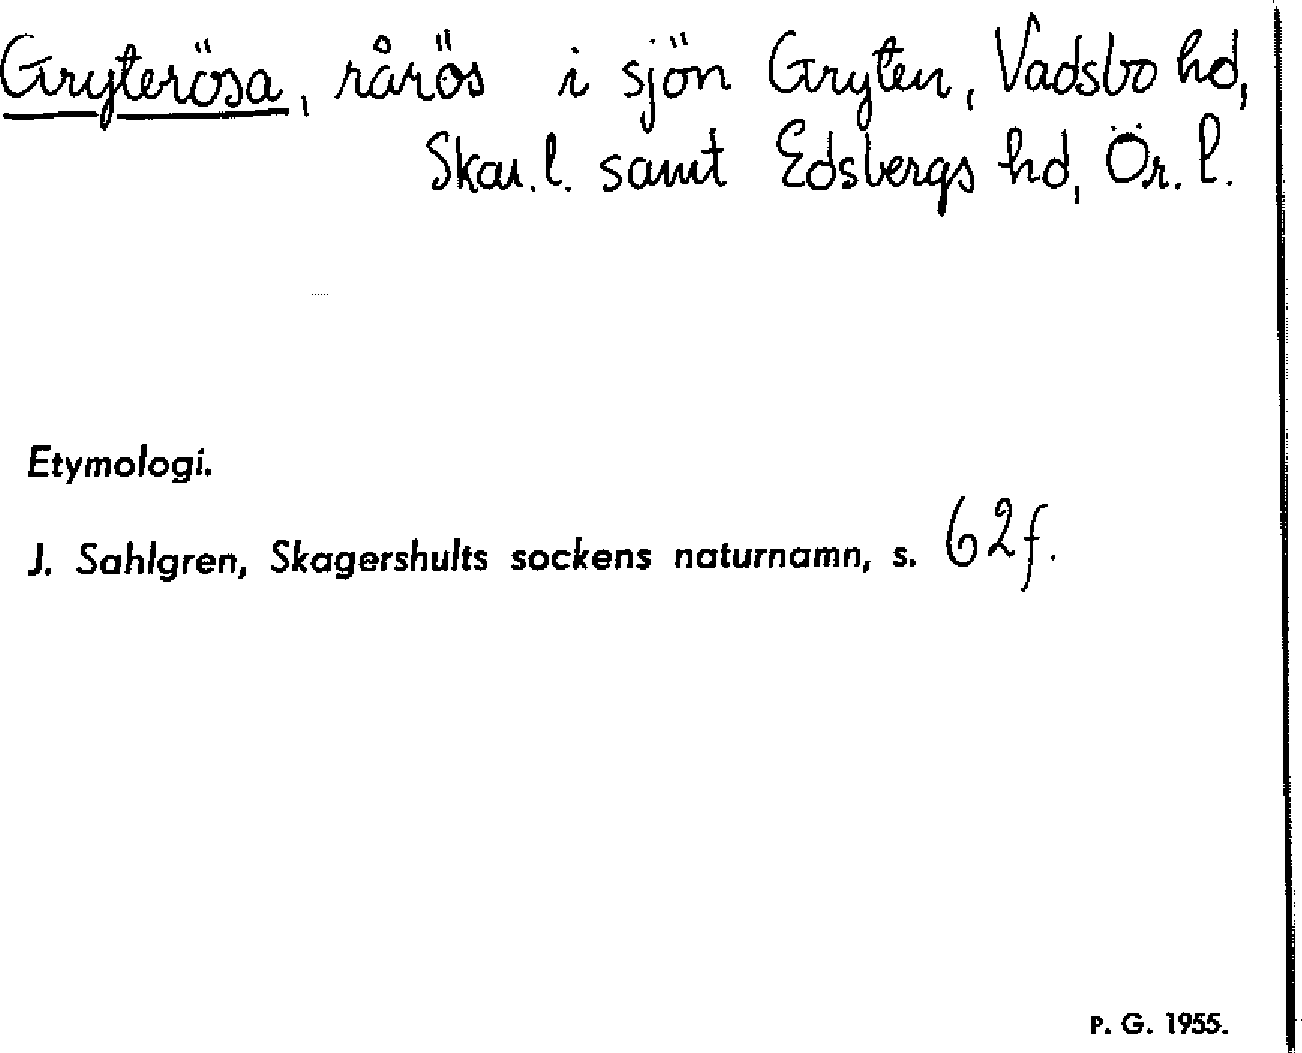 Gryterösa, rårös i sjön Gryten, Vadsbo hd,
Skar. l. samt Edsbergs hd, Ör. l.
Etymologi.
J. Sahlgren, Skagershults sockens naturnamn, s. 62f.
P. G. 1955.